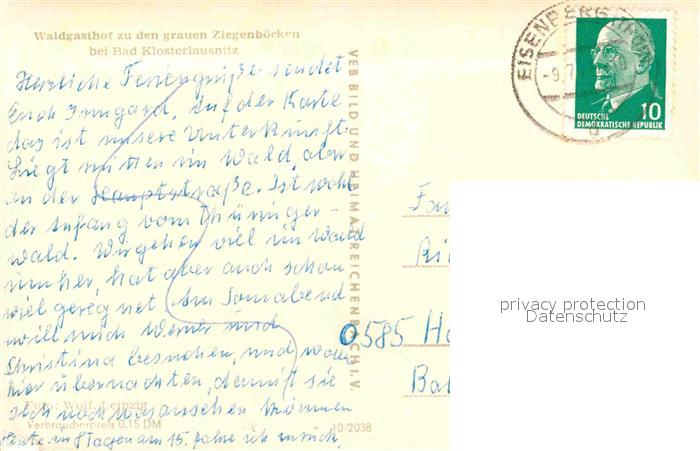 Waldgasthof zu den grauen Ziegenböcken
bei Bad Klosterlausnitz
Herzliche Feriengrüße sendet
Euch Irmgard. Auf der Karte
das ist unsere Unterkunft.
Liegt mitten im Wald, aber
an der Hauptstraße. Ist wohl
der Anfang vom Thüringer-
wald. Wir gehen viel im Wald
umher, hat aber auch schon
viel geregnet. Am Sonnabend
will mich Werner und
Christina besuchen, und wollen
hier übernachten, damit sie
sich noch was ansehen können
Foto: Wolf, Leipzig
Verbraucherpreis 0.15 DM
10/2038
Heute in 8 Tagen am 15. fahre ich zurück.
VEB BILD UND HEIMAT REICHENBACH I.V.
EISENBERG
-9.7
10
DEUTSCHE
DEMOKRATISCHE REPUBLIK
Fa
0585 Ha
Ba
privacy protection
Datenschutz